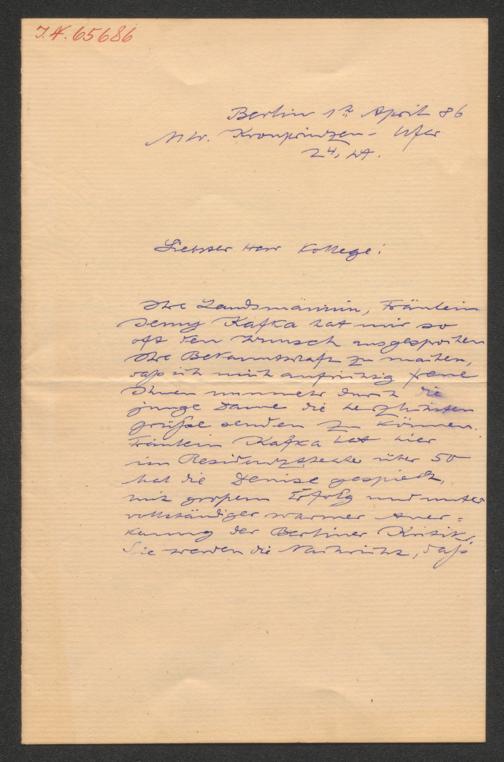 J.N. 65686
Berlin 1t April 86
NW. Kronprinzen-Ufer
24, IV.
Liebster Herr Kollege!
Ihre Landsmännin, Fräulein
Jenny Kafka hat mir so
oft den Wunsch ausgesprochen
Ihre Bekanntschaft zu machen,
daß ich mich aufrichtig freue
Ihnen nunmehr durch die
junge Dame die herzlichsten
Grüße senden zu können.
Fräulein Kafka hat hier
im Residenztheater über 50
Mal die Denise gespielt,
mit großem Erfolg und unter
vollständiger warmer Aner-
kennung der Berliner Kritik.
Sie werden die Nachricht, daß